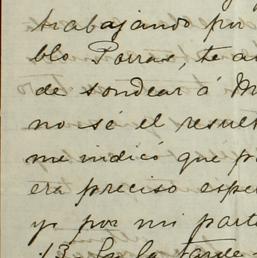 trabajando por
blo Porras, te a
de sondear á M
no sé el result
me indicó que p
era preciso espe
yo por mi parte
13 En la tarde